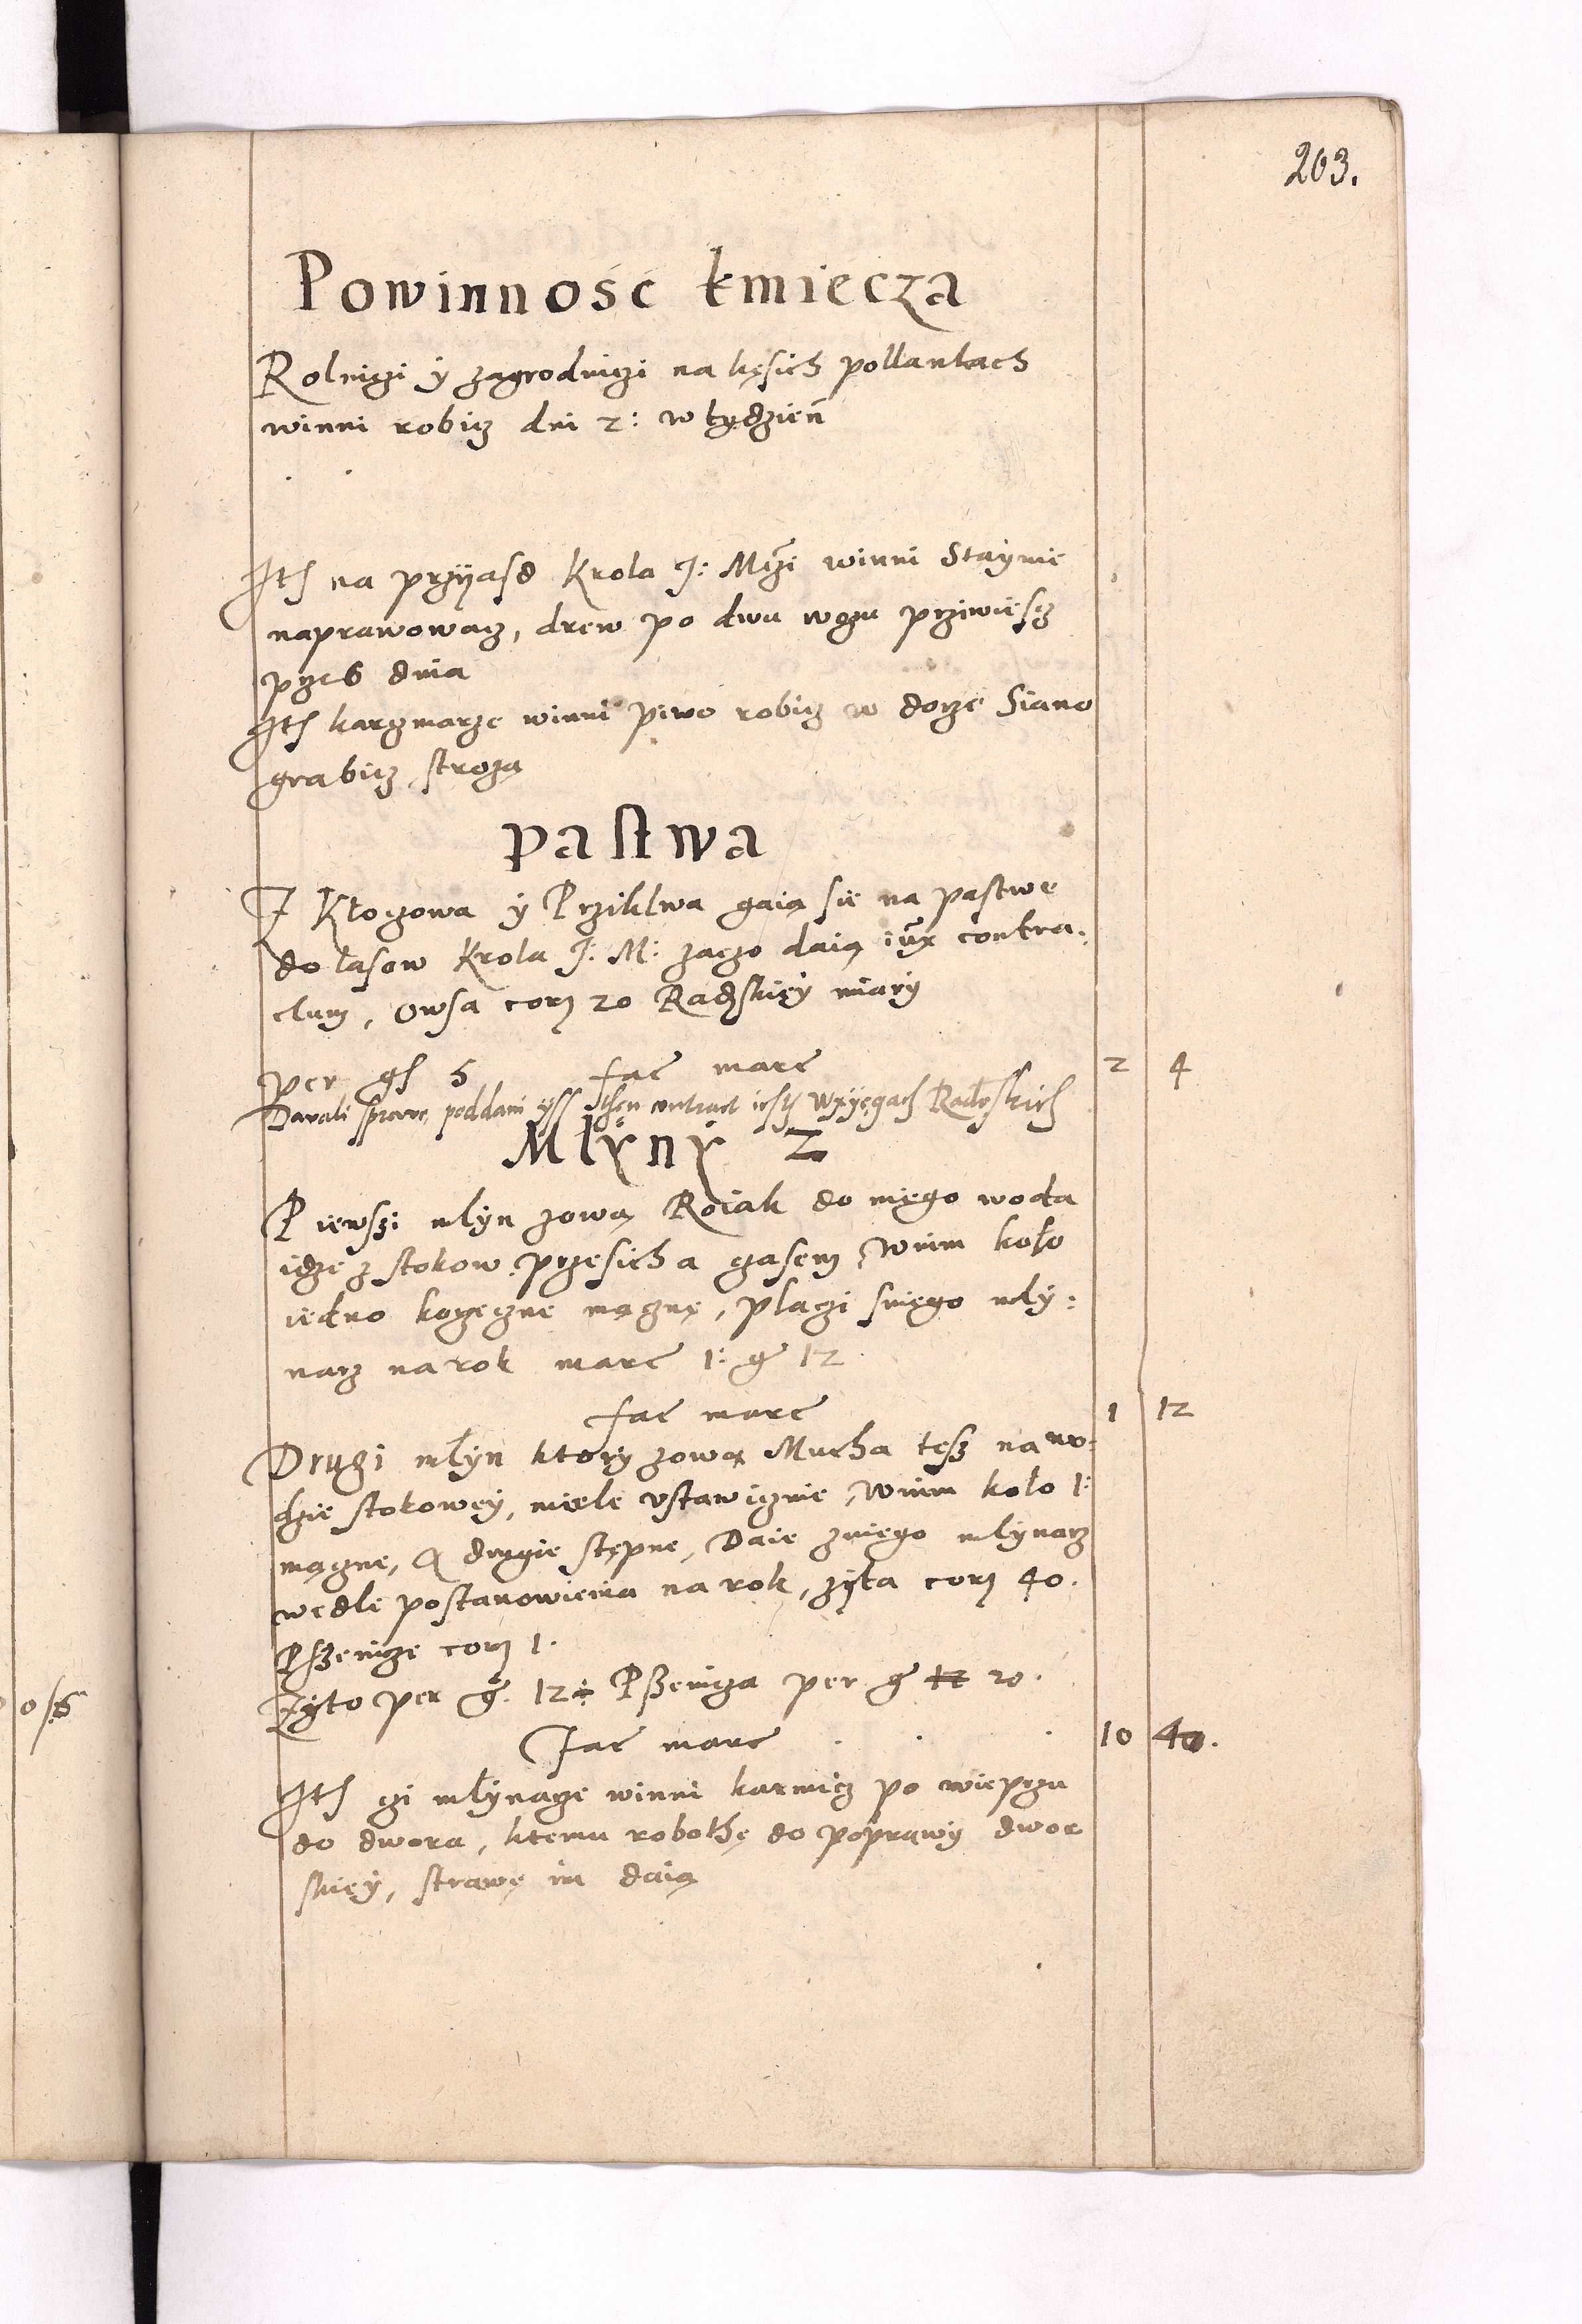 203.
Powinnosc kmiecza
Rolniczi ÿ zagrodniczi na kęsich pollankach
winni robicz dni 2: w tydzień
Ith na przÿasd Krola J: Mczi winni Staÿnie
naprawowacz, drew po dwu wozu prziwiescz
przed dnia
Ith karczmarze winni piwo robicz w dorze Siano
grabicz, stroza
pastwa
Z Kłoczowa ÿ Przikłwa gaią sie na pastwe
do lasow Krola J: M: zaczo daią iux contra-
ctum, owsa corz 20 Radzskięÿ miarÿ
per gs 5 fac marc 2 4
Dawali sprawe poddani ÿss then contract iesth w xÿęgach Radosskich
Młÿnÿ 2
Pierwszi mlÿn zową Roiak do niego woda
idze z stokow przesicha czasem, w nim koło
iedno korzeczne mączne, płaczi sniego mlÿ:
narz na rok marc 1: g 12
fac marc 1 12
Drugi mlÿn ktorÿ zową Mucha tesz na wo:
dzie stokoweÿ, miele vstawicznie, w nim koło 1:
mączne, a drugie stępne, Daie zniego mlÿnarz
wedle postanowienia na rok, zÿta corz 40.
Pszenicze corz 1.
Zÿto per g. 12 Pszenicza per g 12 20.
fac marc 10 40.
Ith czi mlÿnarze winni karmicz po wieprzu
do dwora, ktemu robothę do poprawÿ dwor
skięÿ, strawę im daią
0 / 6